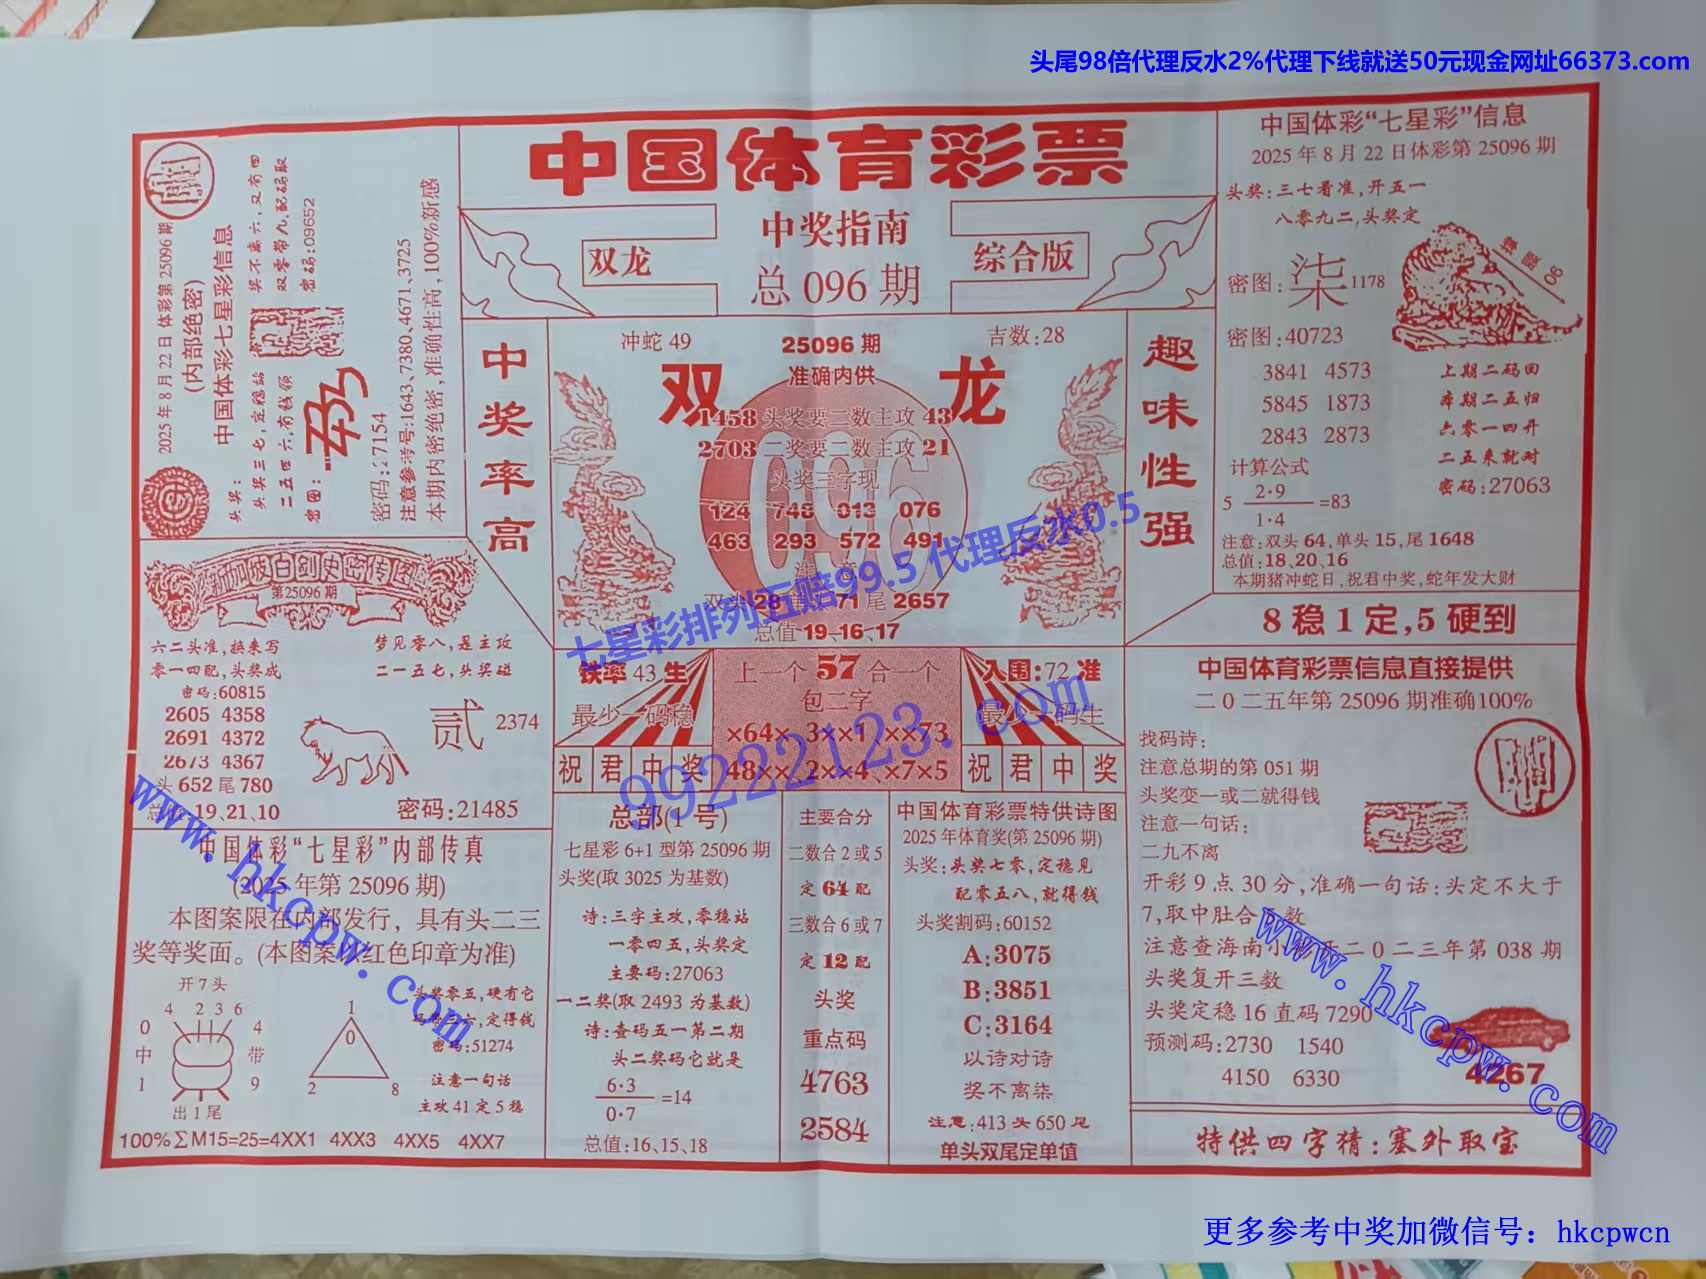 头尾98倍代理反水2%代理下线就送50元现金网址66373.com
中国体育彩票
中奖指南
双龙
综合版
总 096 期
2025 年 8 月 22 日 体彩第 25096 期
(内部绝密)
中国体彩七星彩信息
头奖:
头奖三七,定稳站
二五四六,有钱领
奖不离六,又有四
双零带九,配码取
密码:09652
密图:
密码:27154
注意参考号:1643、7380、4671、3725
本期内密绝密,准确性高,100%新感
中奖率高
冲蛇 49
25096 期
吉数:28
双龙
准确内供
1458 头奖要二数主攻 43
2703 二奖要二数主攻 21
头奖三字现
124 748 013 076
463 293 572 491
注 意
尾 2657
总值 19、16、17
趣味性强
中国体彩“七星彩”信息
2025 年 8 月 22 日体彩第 25096 期
头奖:三七看准,开五一
八零九二,头奖定
密图:柒1178
密图:40723
3841 4573
5845 1873
2843 2873
上期二码回
本期二五归
六零一四开
二五来就对
密码:27063
计算公式
5 2·9/1·4 =83
注意:双头 64,单头 15,尾 1648
总值:18、20、16
本期猪冲蛇日,祝君中奖,蛇年发大财
8 稳 1 定,5 硬到
第25096 期
六二头准,换来写
零一四配,头奖成
密码:60815
2605 4358
2691 4372
2673 4367
头 652 尾 780
总值 19、21、10
梦见零八,是主攻
二一五七,头奖碰
贰 2374
密码:21485
铁率 43 生
最少一码稳
上一个 57 合一个
包二字
×64×、3××1、××73
48××、2××4、×7×5
入围:72 准
最少一码生
祝君中奖
祝君中奖
七星彩排列五赔99.5 代理反水0.5
99222123.com
中国体彩“七星彩”内部传真
(2025 年第 25096 期)
本图案限在内部发行，具有头二三
奖等奖面。(本图案以红色印章为准)
开 7 头
4 2 3 6
0 中 1
4 带 9
出 1 尾
1
0
2 8
头奖零五,硬有它
定得钱
密码:51274
注意一句话
主攻 41 定 5 稳
100%∑M15=25=4XX1 4XX3 4XX5 4XX7
总部(1 号)
七星彩 6+1 型第 25096 期
头奖(取 3025 为基数)
诗:三字主攻,零稳站
一零四五,头奖定
主要码:27063
一二奖(取 2493 为基数)
诗:查码五一第二期
头二奖码它就是
6·3/0·7 =14
总值:16、15、18
主要合分
二数合 2 或 5
定 64 配
三数合 6 或 7
定 12 配
头奖
重点码
4763
2584
中国体育彩票特供诗图
2025 年体育奖(第 25096 期)
头奖:头奖七零,定稳见
配零五八,就得钱
头奖割码:60152
A:3075
B:3851
C:3164
以诗对诗
奖不离柒
注意:413 头 650 尾
单头双尾定单值
中国体育彩票信息直接提供
二 0 二五年第 25096 期准确100%
找码诗:
注意总期的第 051 期
头奖变一或二就得钱
注意一句话:
二九不离
开彩 9 点 30 分,准确一句话:头定不大于
7,取中肚合 数
注意查海南小 二 0 二三年第 038 期
头奖复开三数
头奖定稳 16 直码 7290
预测码:2730 1540
4150 6330
4267
特供四字猜:塞外取宝
www.hkcpw.com
www.hkcpw.com
更多参考中奖加微信号：hkcpwcn